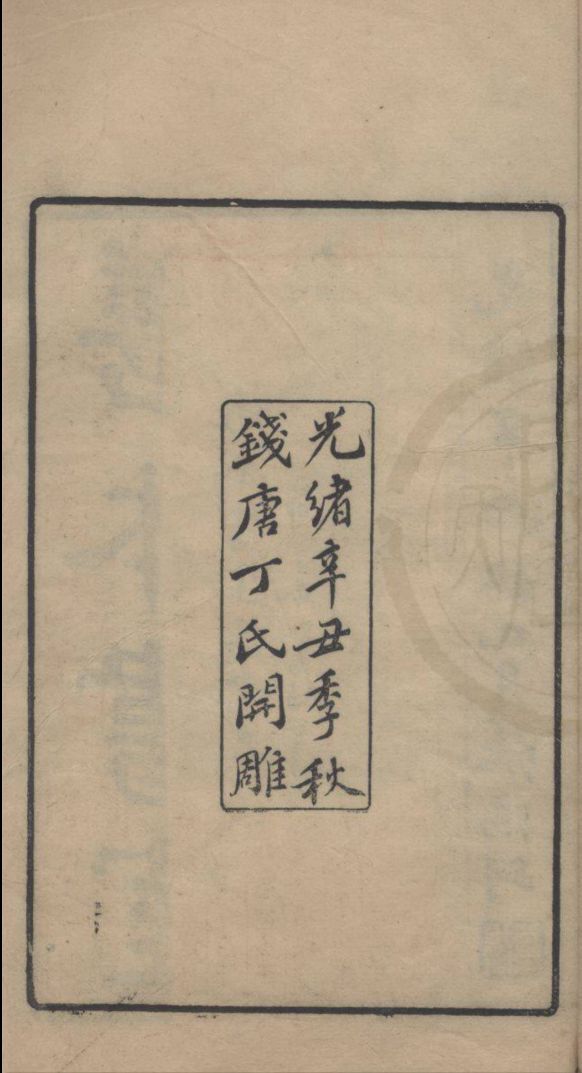 光緒辛丑季秋
錢唐丁氏開雕